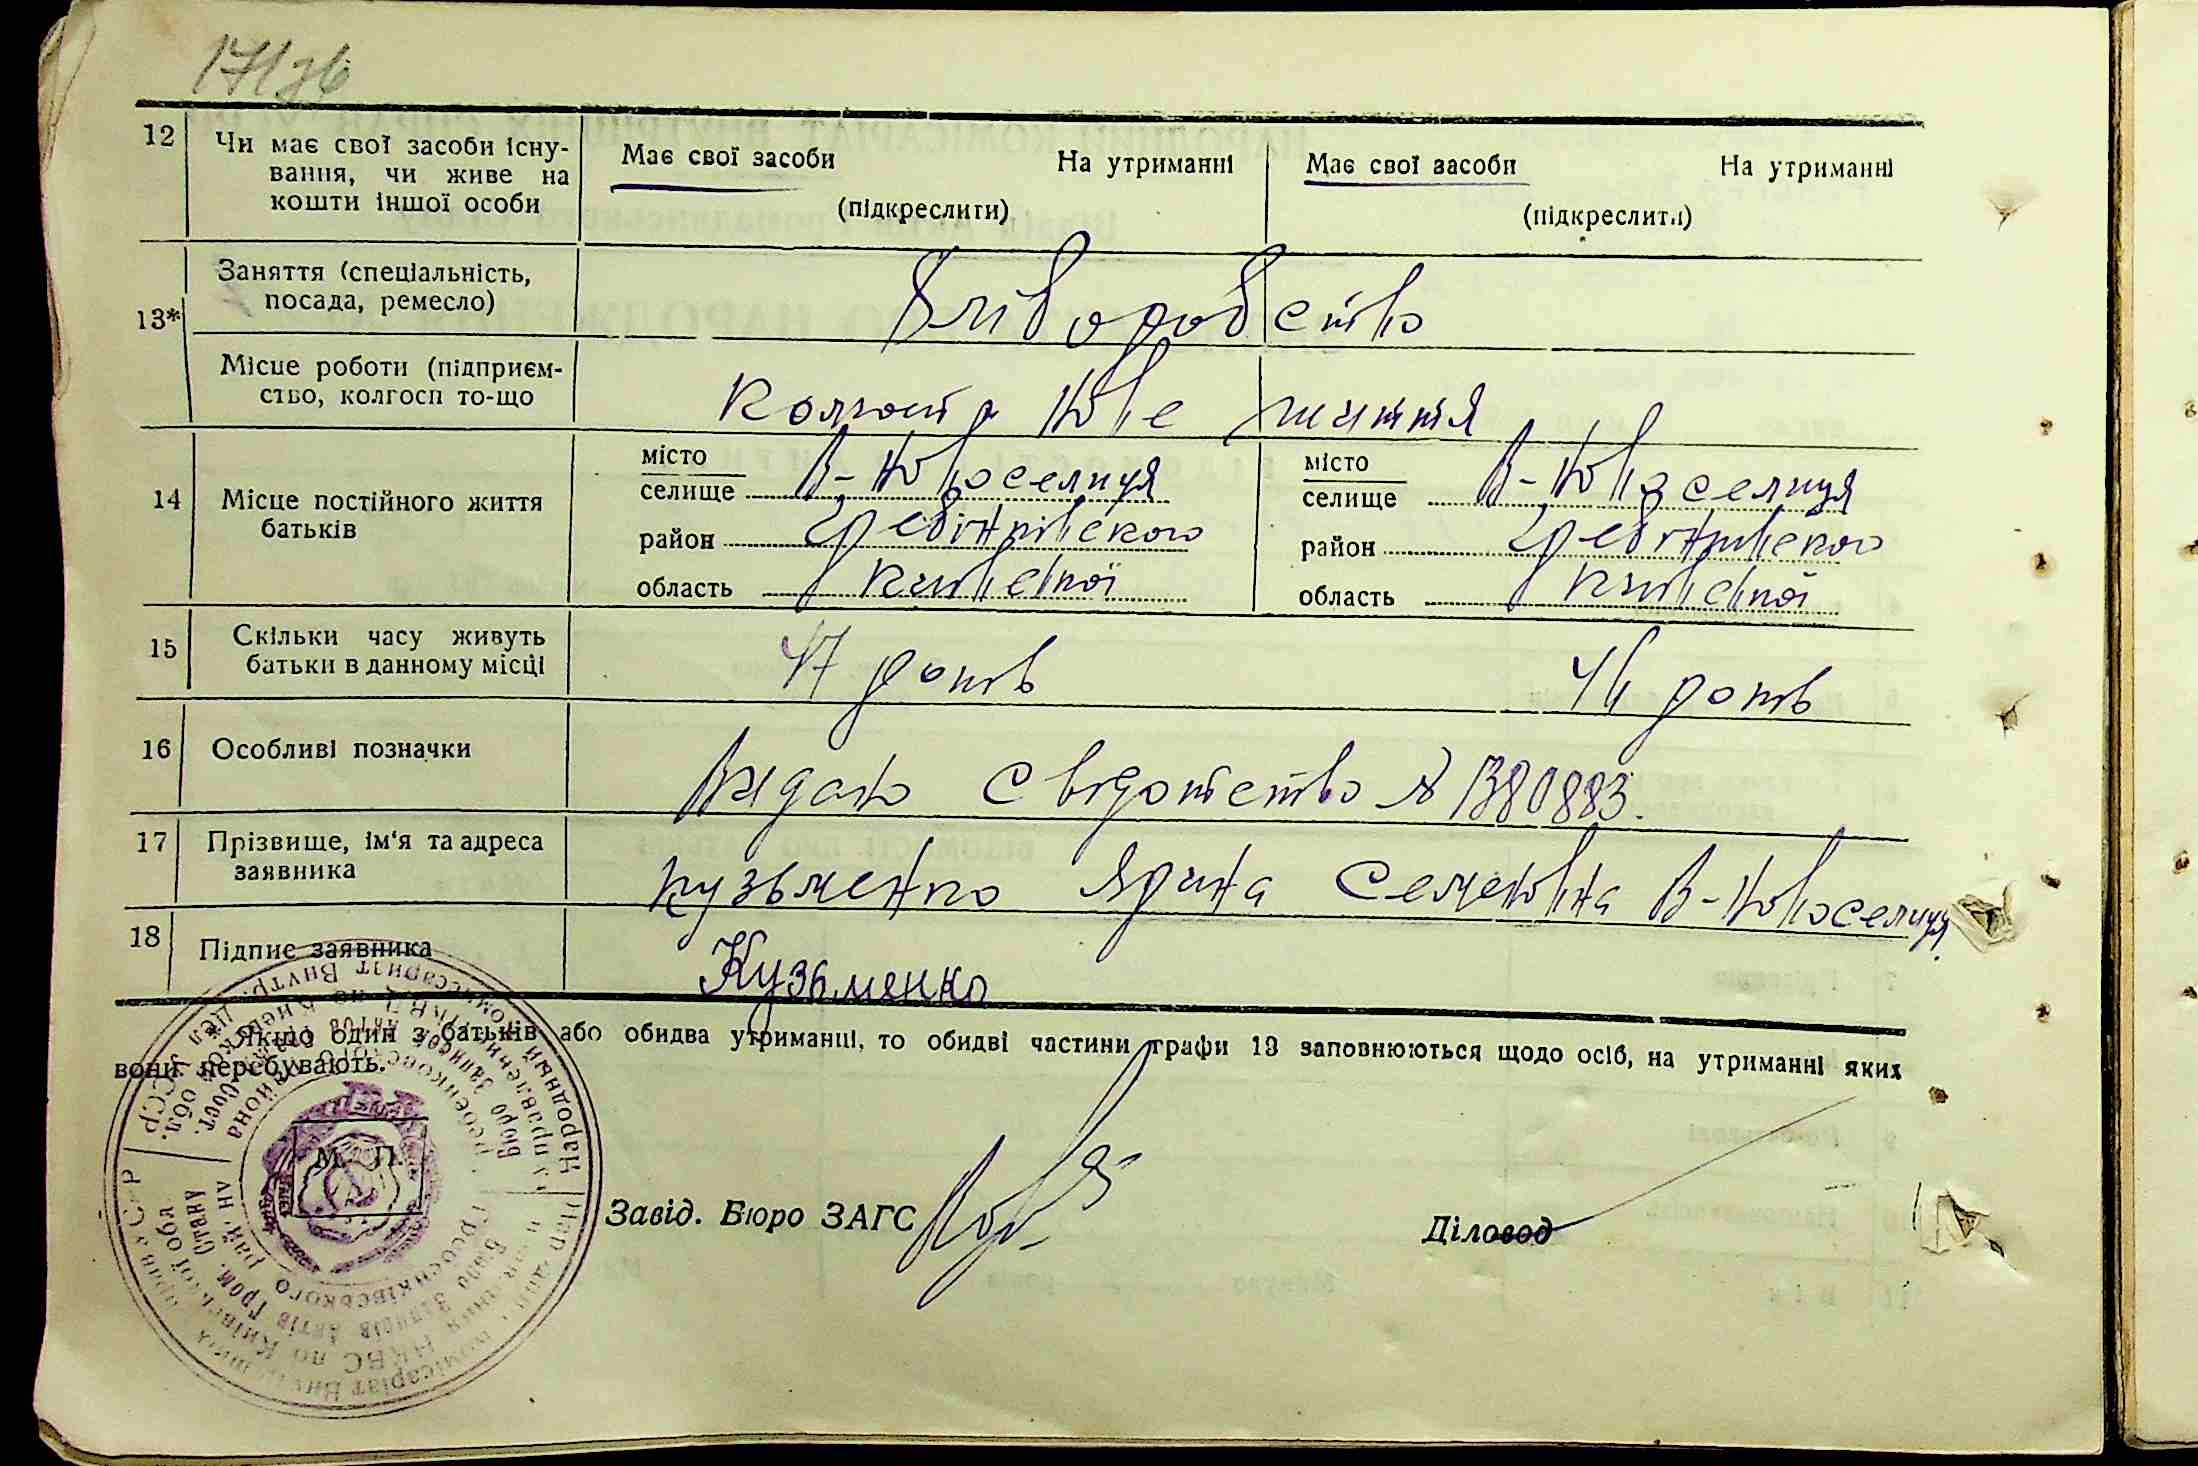 12 Чи має свої засоби існу-
вання, чи живе на
кошти іншої особи
Має свої засоби На утриманні
(підкреслити)
Має свої засоби На утриманні
(підкреслити)
13* Заняття (спеціальність,
посада, ремесло)
Хліборобство
Місце роботи (підприєм-
ство, колгосп то-що
Колгосп Нове життя
14 Місце постійного життя
батьків
місто
селище В-Новоселиця
район Гребінківського
область Київської
місто
селище В-Новоселиця
район Гребінківського
область Київської
15 Скільки часу живуть
батьки в данному місці
47 років 46 років
16 Особливі позначки
Видано свідотство № 1380883.
17 Прізвище, ім'я та адреса
заявника
Кузьменко Ярина Семеновна В-Новоселиця
18 Підпис заявника
Кузьменко
* Якщо один з батьків або обидва утриманці, то обидві частини графи 13 заповнюються щодо осіб, на утриманні яких
вони перебувають.
М. П.
Завід. Бюро ЗАГС
Діловод